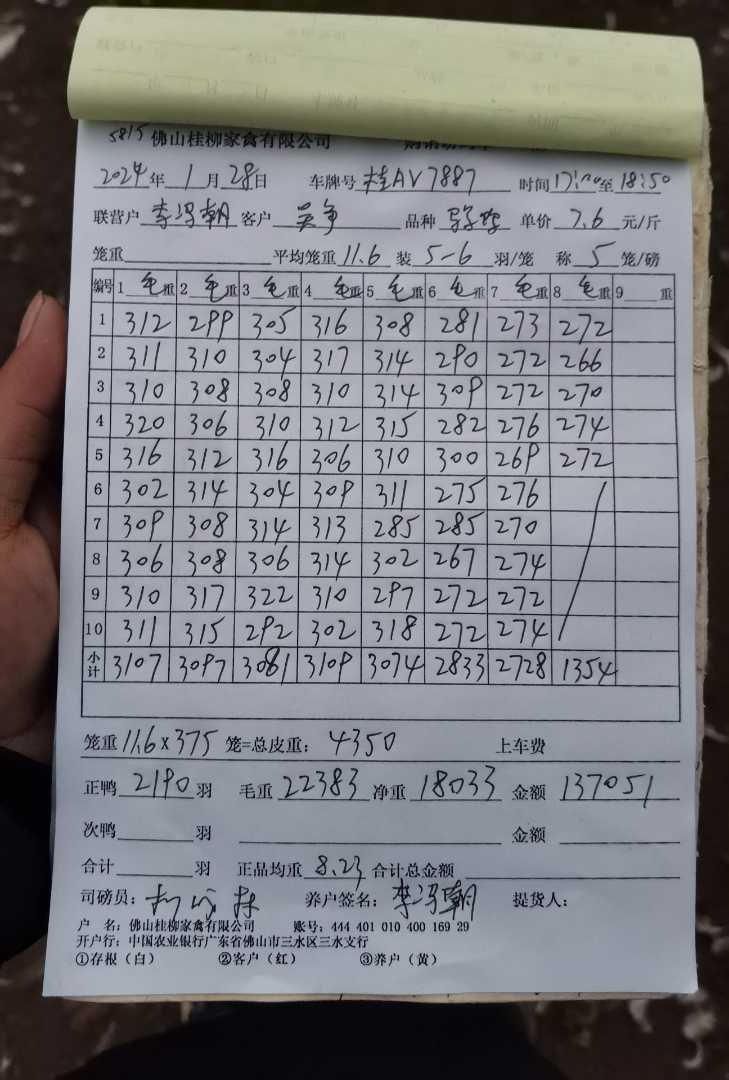 5815 佛山桂柳家禽有限公司
2024年 1月 28日 车牌号 桂AV7887 时间 17:00至 18:50
联营户 李冯朝 客户 吴争 品种 单价 7.6 元/斤
笼重 平均笼重 11.6 装 5-6 羽/笼 称 5 笼/磅
编号 1 毛重 2 毛重 3 毛重 4 毛重 5 毛重 6 毛重 7 毛重 8 毛重 9 重
1 312 299 305 316 308 281 273 272
2 311 310 304 317 314 290 272 266
3 310 308 308 310 314 309 272 270
4 320 306 310 312 315 282 276 274
5 316 312 316 306 310 300 269 272
6 302 314 304 309 311 275 276
7 309 308 314 313 285 285 270
8 306 308 306 314 302 267 274
9 310 317 322 310 297 272 272
10 311 315 292 302 318 272 274
小计 3107 3097 3081 3109 3074 2833 2728 1354
笼重 11.6×375 笼=总皮重: 4350 上车费
正鸭 2190 羽 毛重 22383 净重 18033 金额 137051
次鸭 羽 金额
合计 羽 正品均重 8.23 合计总金额
司磅员: 养户签名: 李冯朝 提货人:
户 名: 佛山桂柳家禽有限公司 账号: 444 401 010 400 169 29
开户行: 中国农业银行广东省佛山市三水区三水支行
①存根（白） ②客户（红） ③养户（黄）